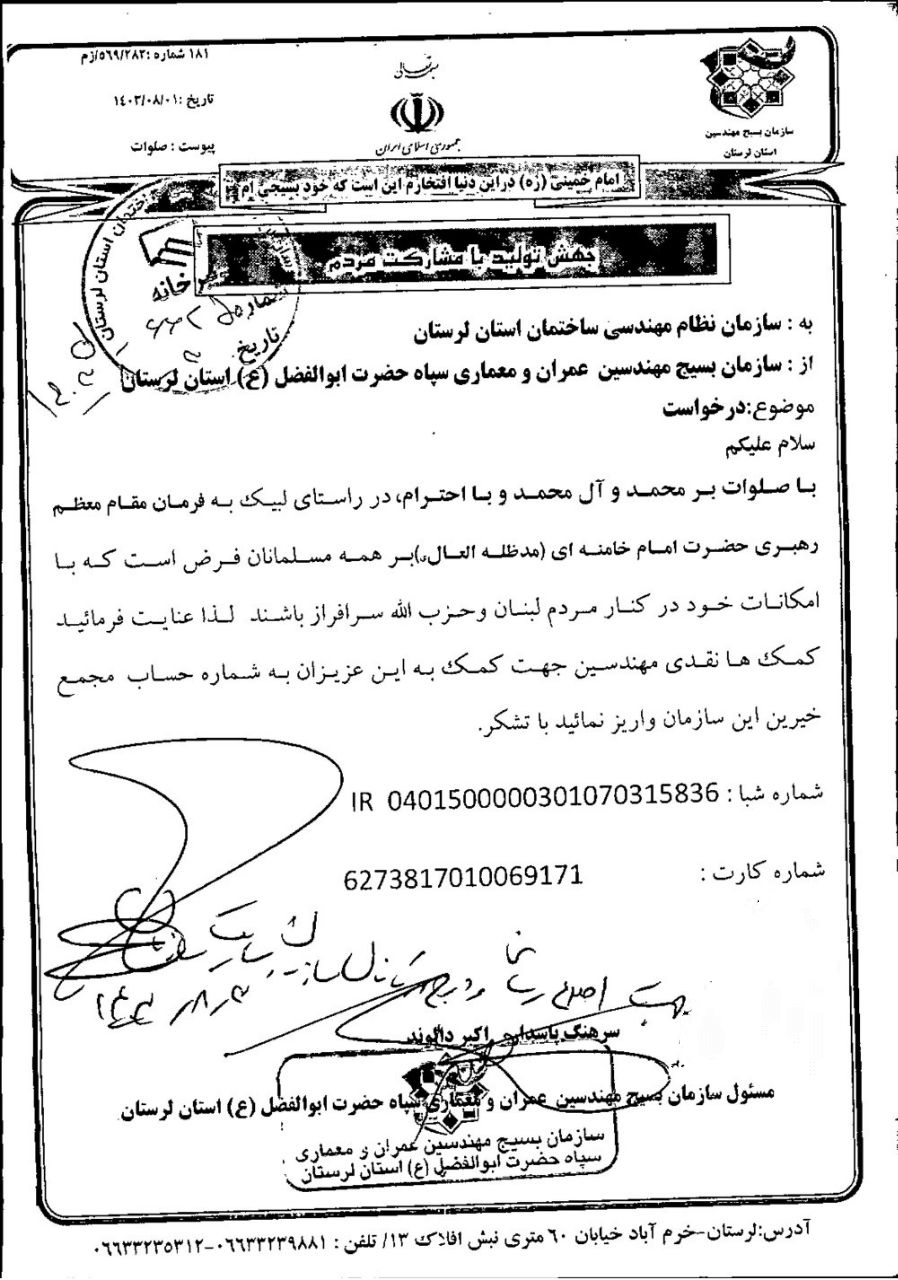 ۱۸۱ شماره :۵۶۹/۲۸۳/ازم
تاریخ :۱۴۰۳/۰۸/۰۱
پیوست : صلوات
بسمه تعالی
جمهوری اسلامی ایران
سازمان بسیج مهندسین
استان لرستان
امام خمینی (ره) در این دنیا افتخارم این است که خود بسیجی ام
جهش تولید با مشارکت مردم
استان لرستان
دبیرخانه
شماره
تاریخ
به : سازمان نظام مهندسی ساختمان استان لرستان
از : سازمان بسیج مهندسین عمران و معماری سپاه حضرت ابوالفضل (ع) استان لرستان
موضوع:درخواست
سلام علیکم
با صلوات بر محمد و آل محمد و با احترام، در راستای لبیک به فرمان مقام معظم
رهبری حضرت امام خامنه ای (مدظله العالی)بر همه مسلمانان فرض است که با
امکانات خود در کنار مردم لبنان وحزب الله سرافراز باشند لذا عنایت فرمائید
کمک ها نقدی مهندسین جهت کمک به این عزیزان به شماره حساب مجمع
خیرین این سازمان واریز نمائید با تشکر.
شماره شبا : IR 0401500000301070315836
شماره کارت : 6273817010069171
جهت اطلاع رسانی و درج در کانال سازمان
سرهنگ پاسدار اکبر دالوند
مسئول سازمان بسیج مهندسین عمران و معماری سپاه حضرت ابوالفضل (ع) استان لرستان
سازمان بسیج مهندسین عمران و معماری
سپاه حضرت ابوالفضل (ع) استان لرستان
آدرس:لرستان-خرم آباد خیابان ۶۰ متری نبش افلاک ۱۳/ تلفن : ۰۶۶۳۳۲۳۹۸۸۱-۰۶۶۳۳۲۳۵۳۱۲